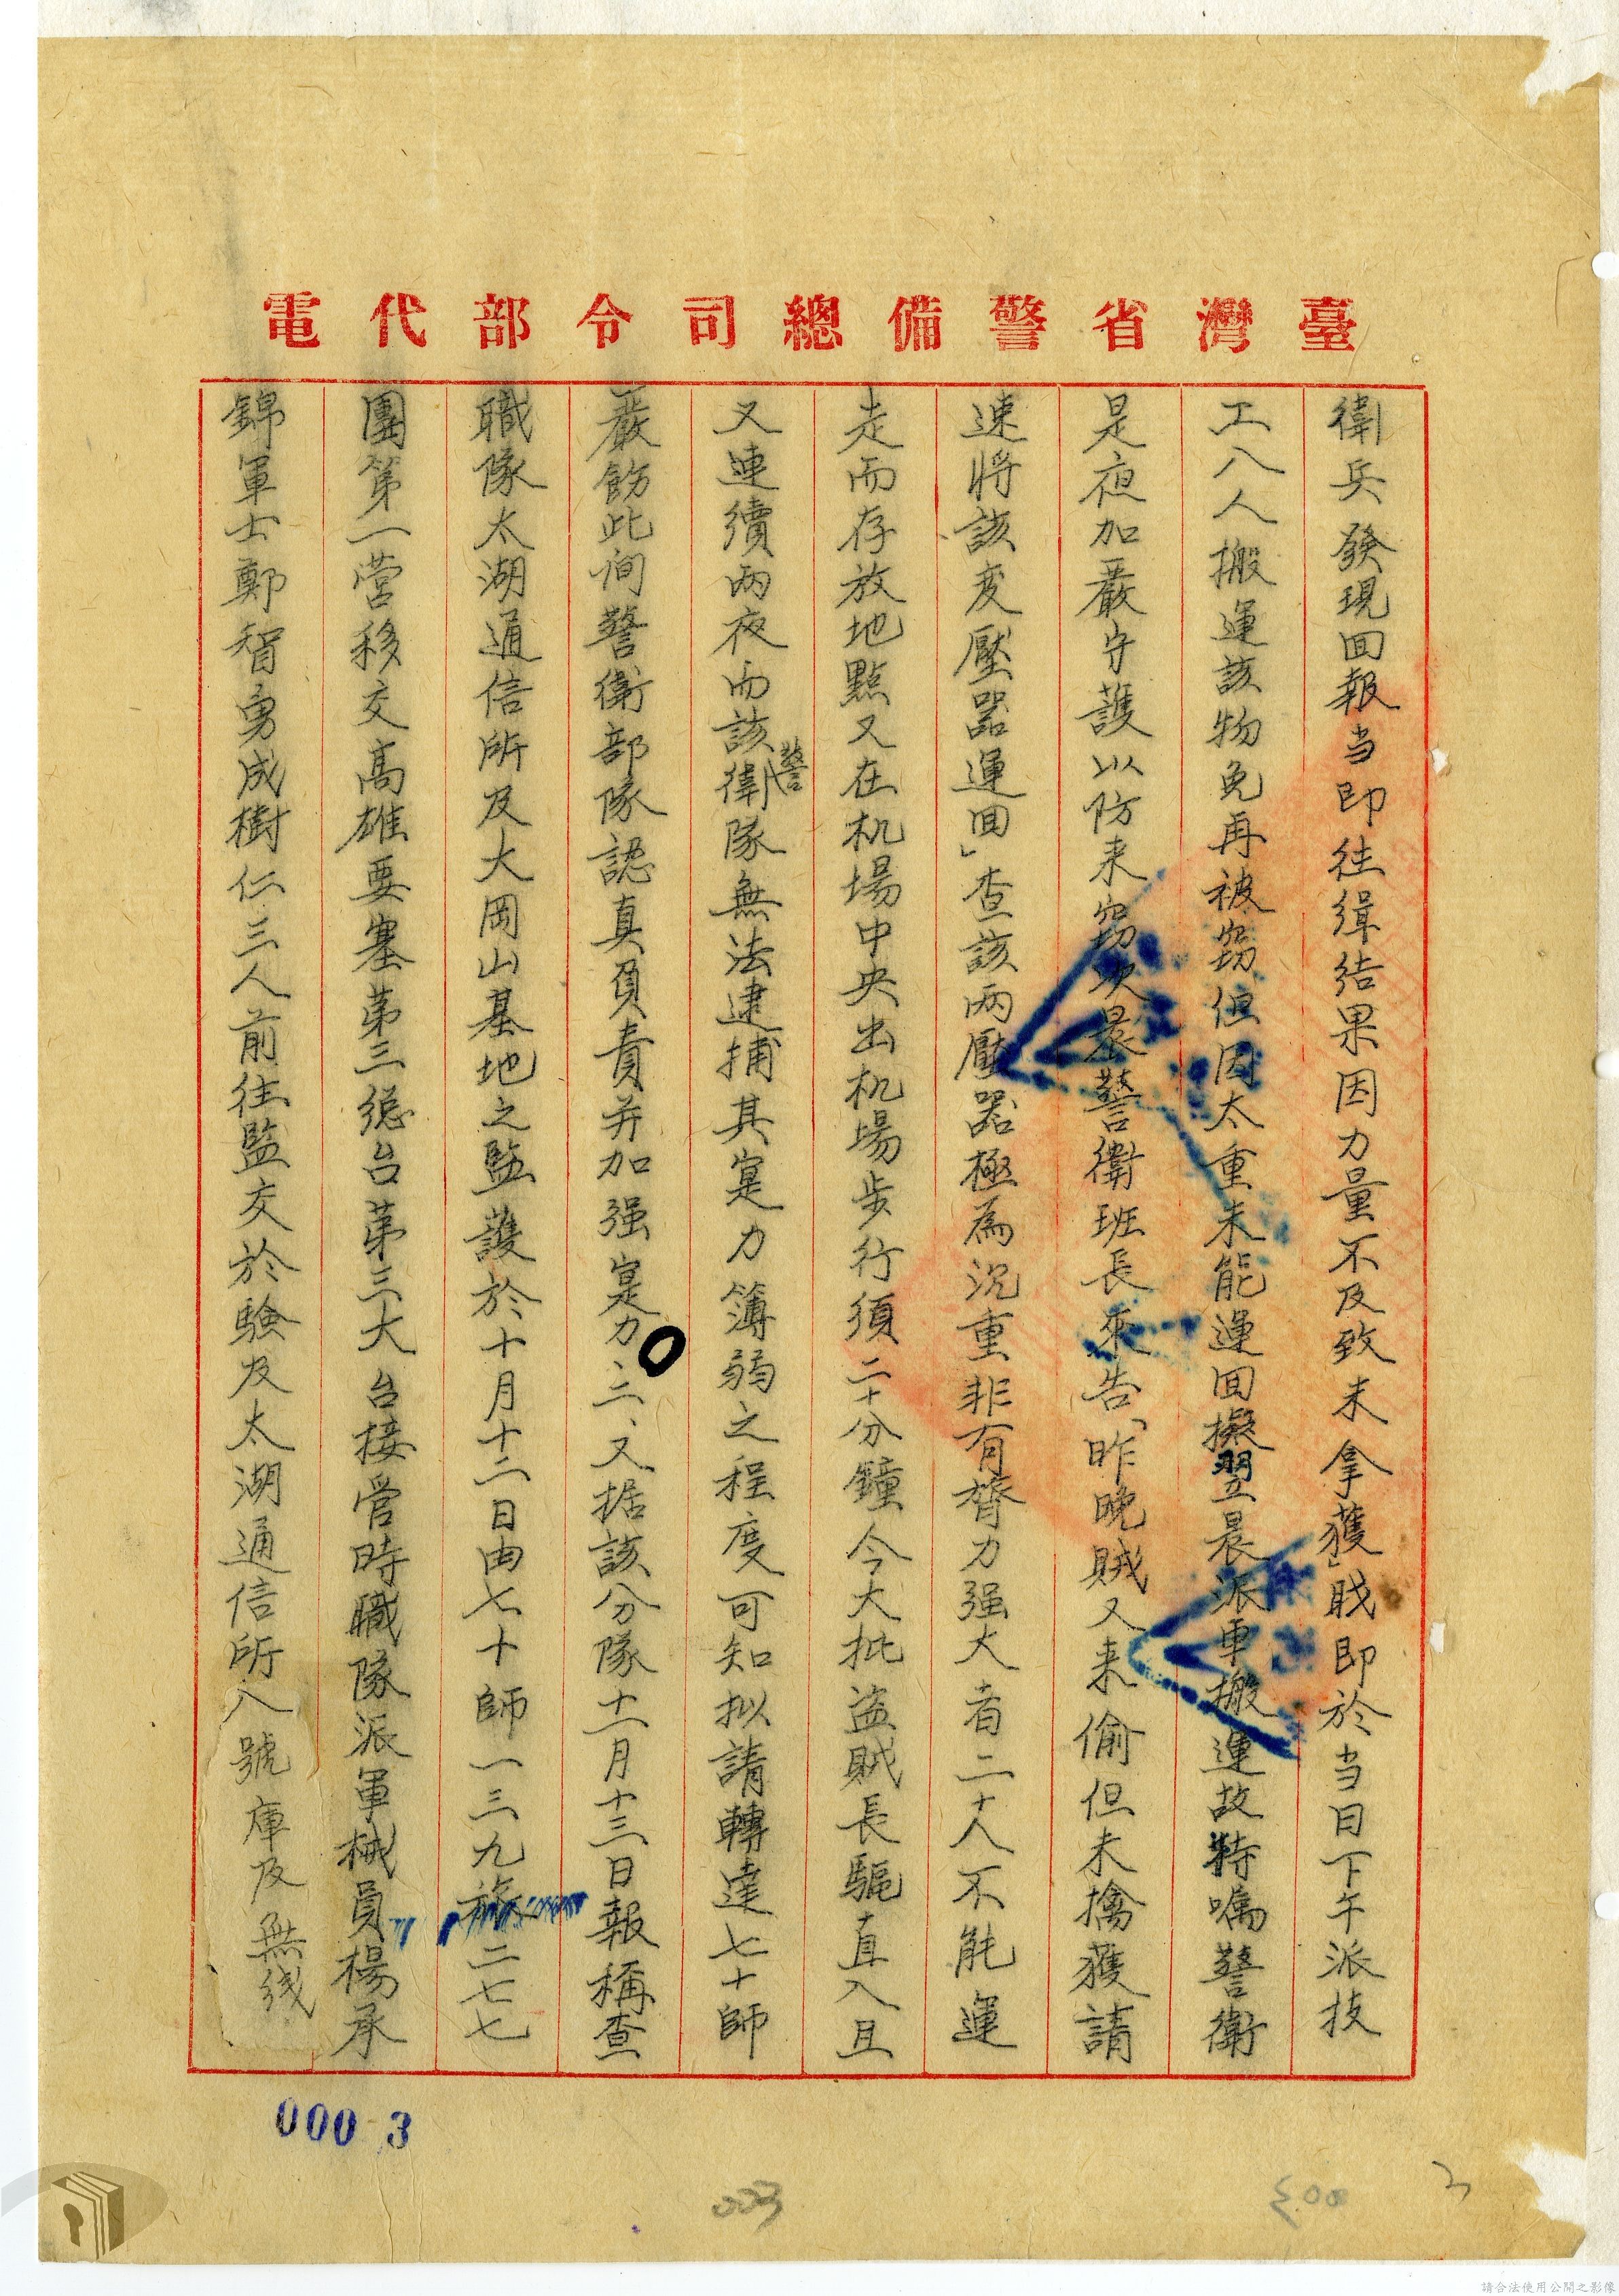 臺灣省警備總司令部代電
衛兵發現回報当即往緝結果因力量不及致未拿獲」職即於当日下午派技
工八人搬運該物免再被窃但因太重未能運回擬翌晨派車搬運故特嘱警衛
是夜加嚴守護以防来窃次晨警衛班長來告「昨晚賊又来偷但未擒獲請
速將該变壓器運回」查該两壓器極為沉重非有膂力强大者二十人不能運
走而存放地點又在机場中央出机場步行須二十分鐘今大批盜賊長驅直入且
又連續两夜而該警衛隊無法逮捕其寔力簿弱之程度可知拟請轉達七十師
嚴飭此间警衛部隊認真負責并加强寔力二、又据該分隊十一月十三日報稱查
職隊太湖通信所及大岡山基地之監護於十月十二日由七十師一三九旅二七七
團第一营移交高雄要塞第三總台第三大台接管時職隊派軍械員楊承
錦軍士鄭智勇成樹仁三人前往監交於驗及太湖通信所八號庫及無线
000 3
003
003
3
請合法使用公開之影像